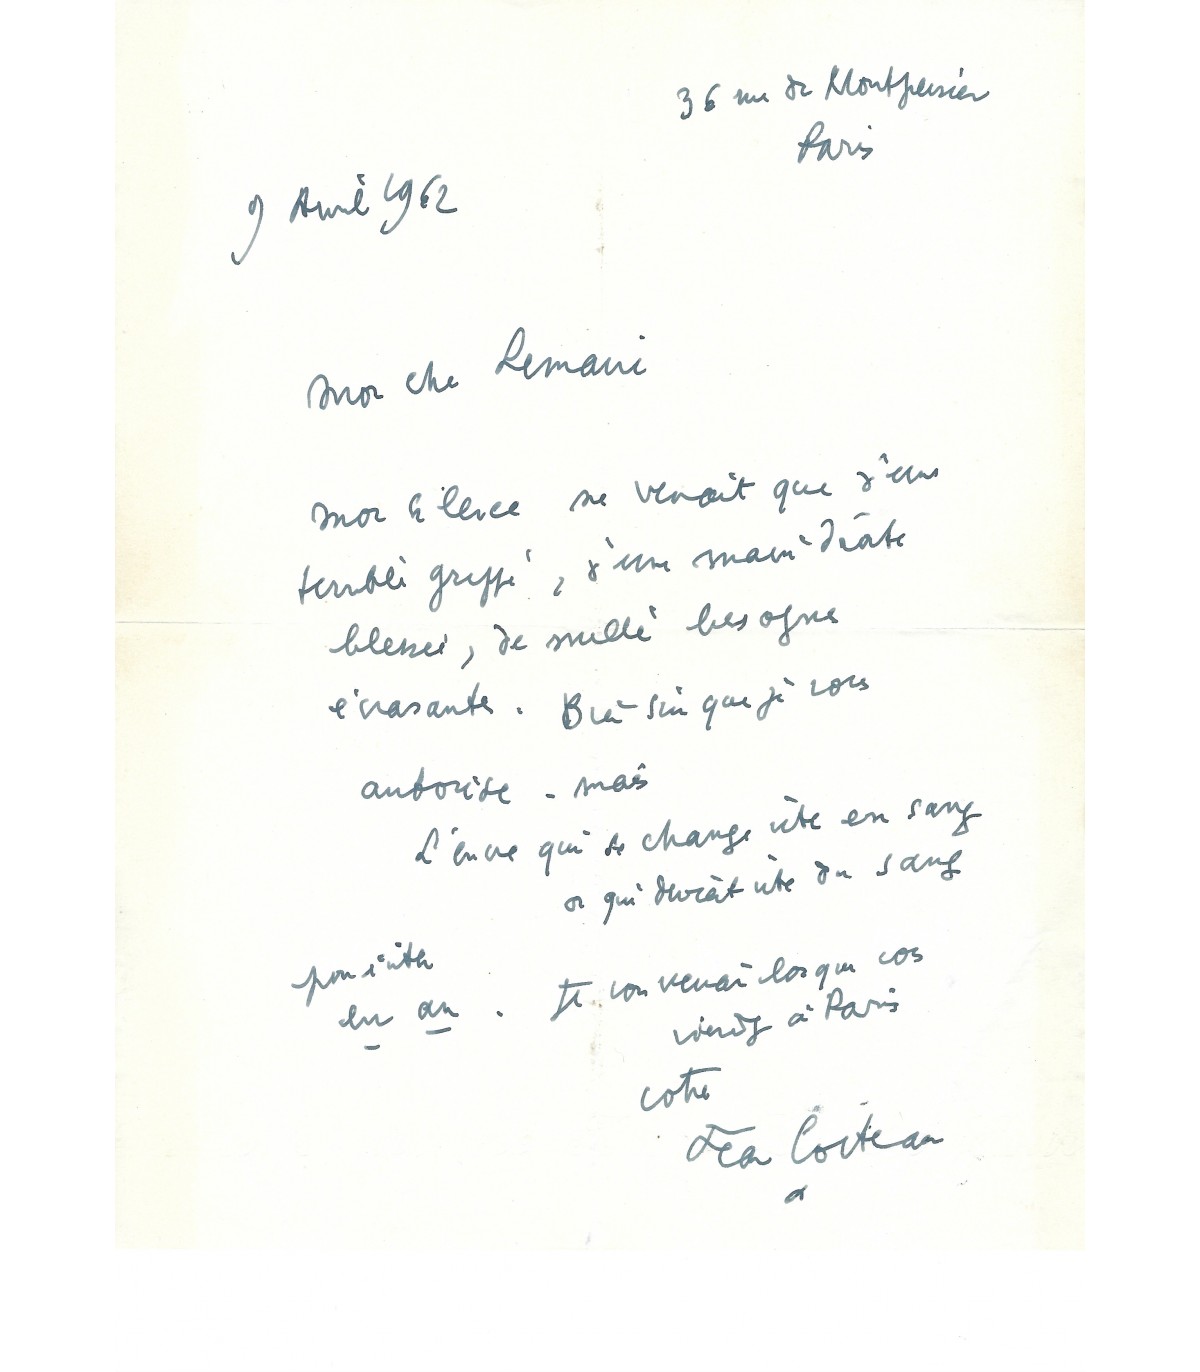 36 rue de Montpensier
Paris
9 Avril 1962
Mon cher
Mon silence ne venait que d'une
terrible grippe, d'une main droite
blessée, de mille besognes
écrasantes. Bien sûr que je vous
autorise - mais
L'encre qui se change vite en sang
ou qui devrait vite du sang
pour éviter
en an. Je vous verrai lorsque vous
viendrez à Paris
votre
Jean Cocteau